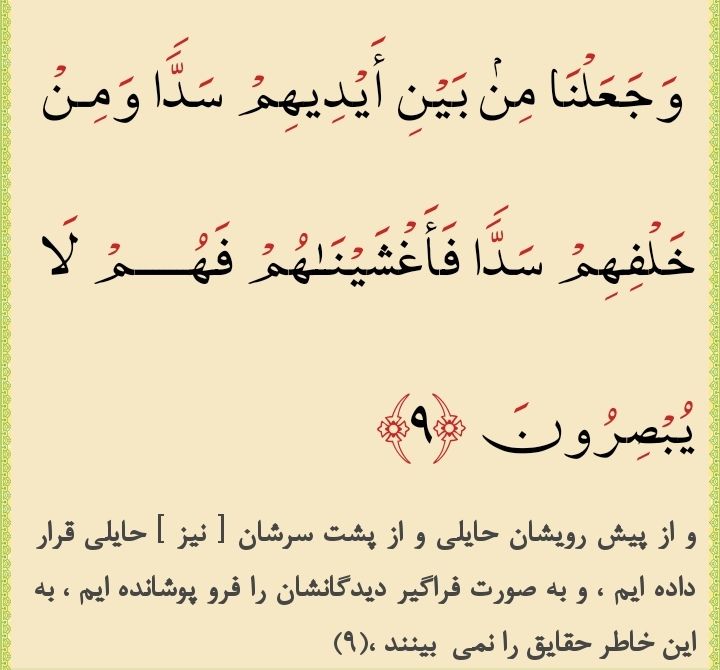 وَجَعَلْنَا مِنۢ بَيْنِ أَيْدِيهِمْ سَدًّا وَمِنْ
خَلْفِهِمْ سَدًّا فَأَغْشَيْنَـٰهُمْ فَهُــــمْ لَا
يُبْصِرُونَ ﴿٩﴾
و از پیش رویشان حایلی و از پشت سرشان [ نیز ] حایلی قرار
داده ایم ، و به صورت فراگیر دیدگانشان را فرو پوشانده ایم ، به
این خاطر حقایق را نمی بینند ،(۹)